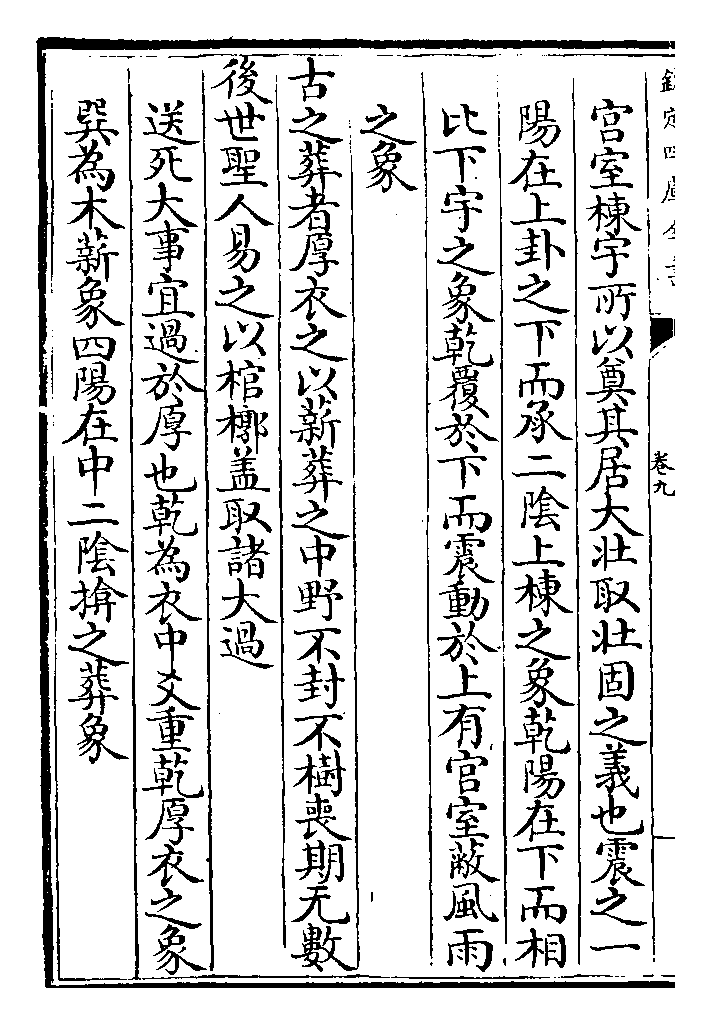 欽定四庫全書
卷九
宫室棟宇所以奠其居大壯取壯固之義也震之一
陽在上卦之下而承二陰上棟之象乾陽在下而相
比下宇之象乾覆於下而震動於上有宫室蔽風雨
之象
古之葬者厚衣之以薪葬之中野不封不樹喪期无數
後世聖人易之以棺槨盖取諸大過
送死大事宜過於厚也乾為衣中爻重乾厚衣之象
巽為木薪象四陽在中二陰揜之葬象